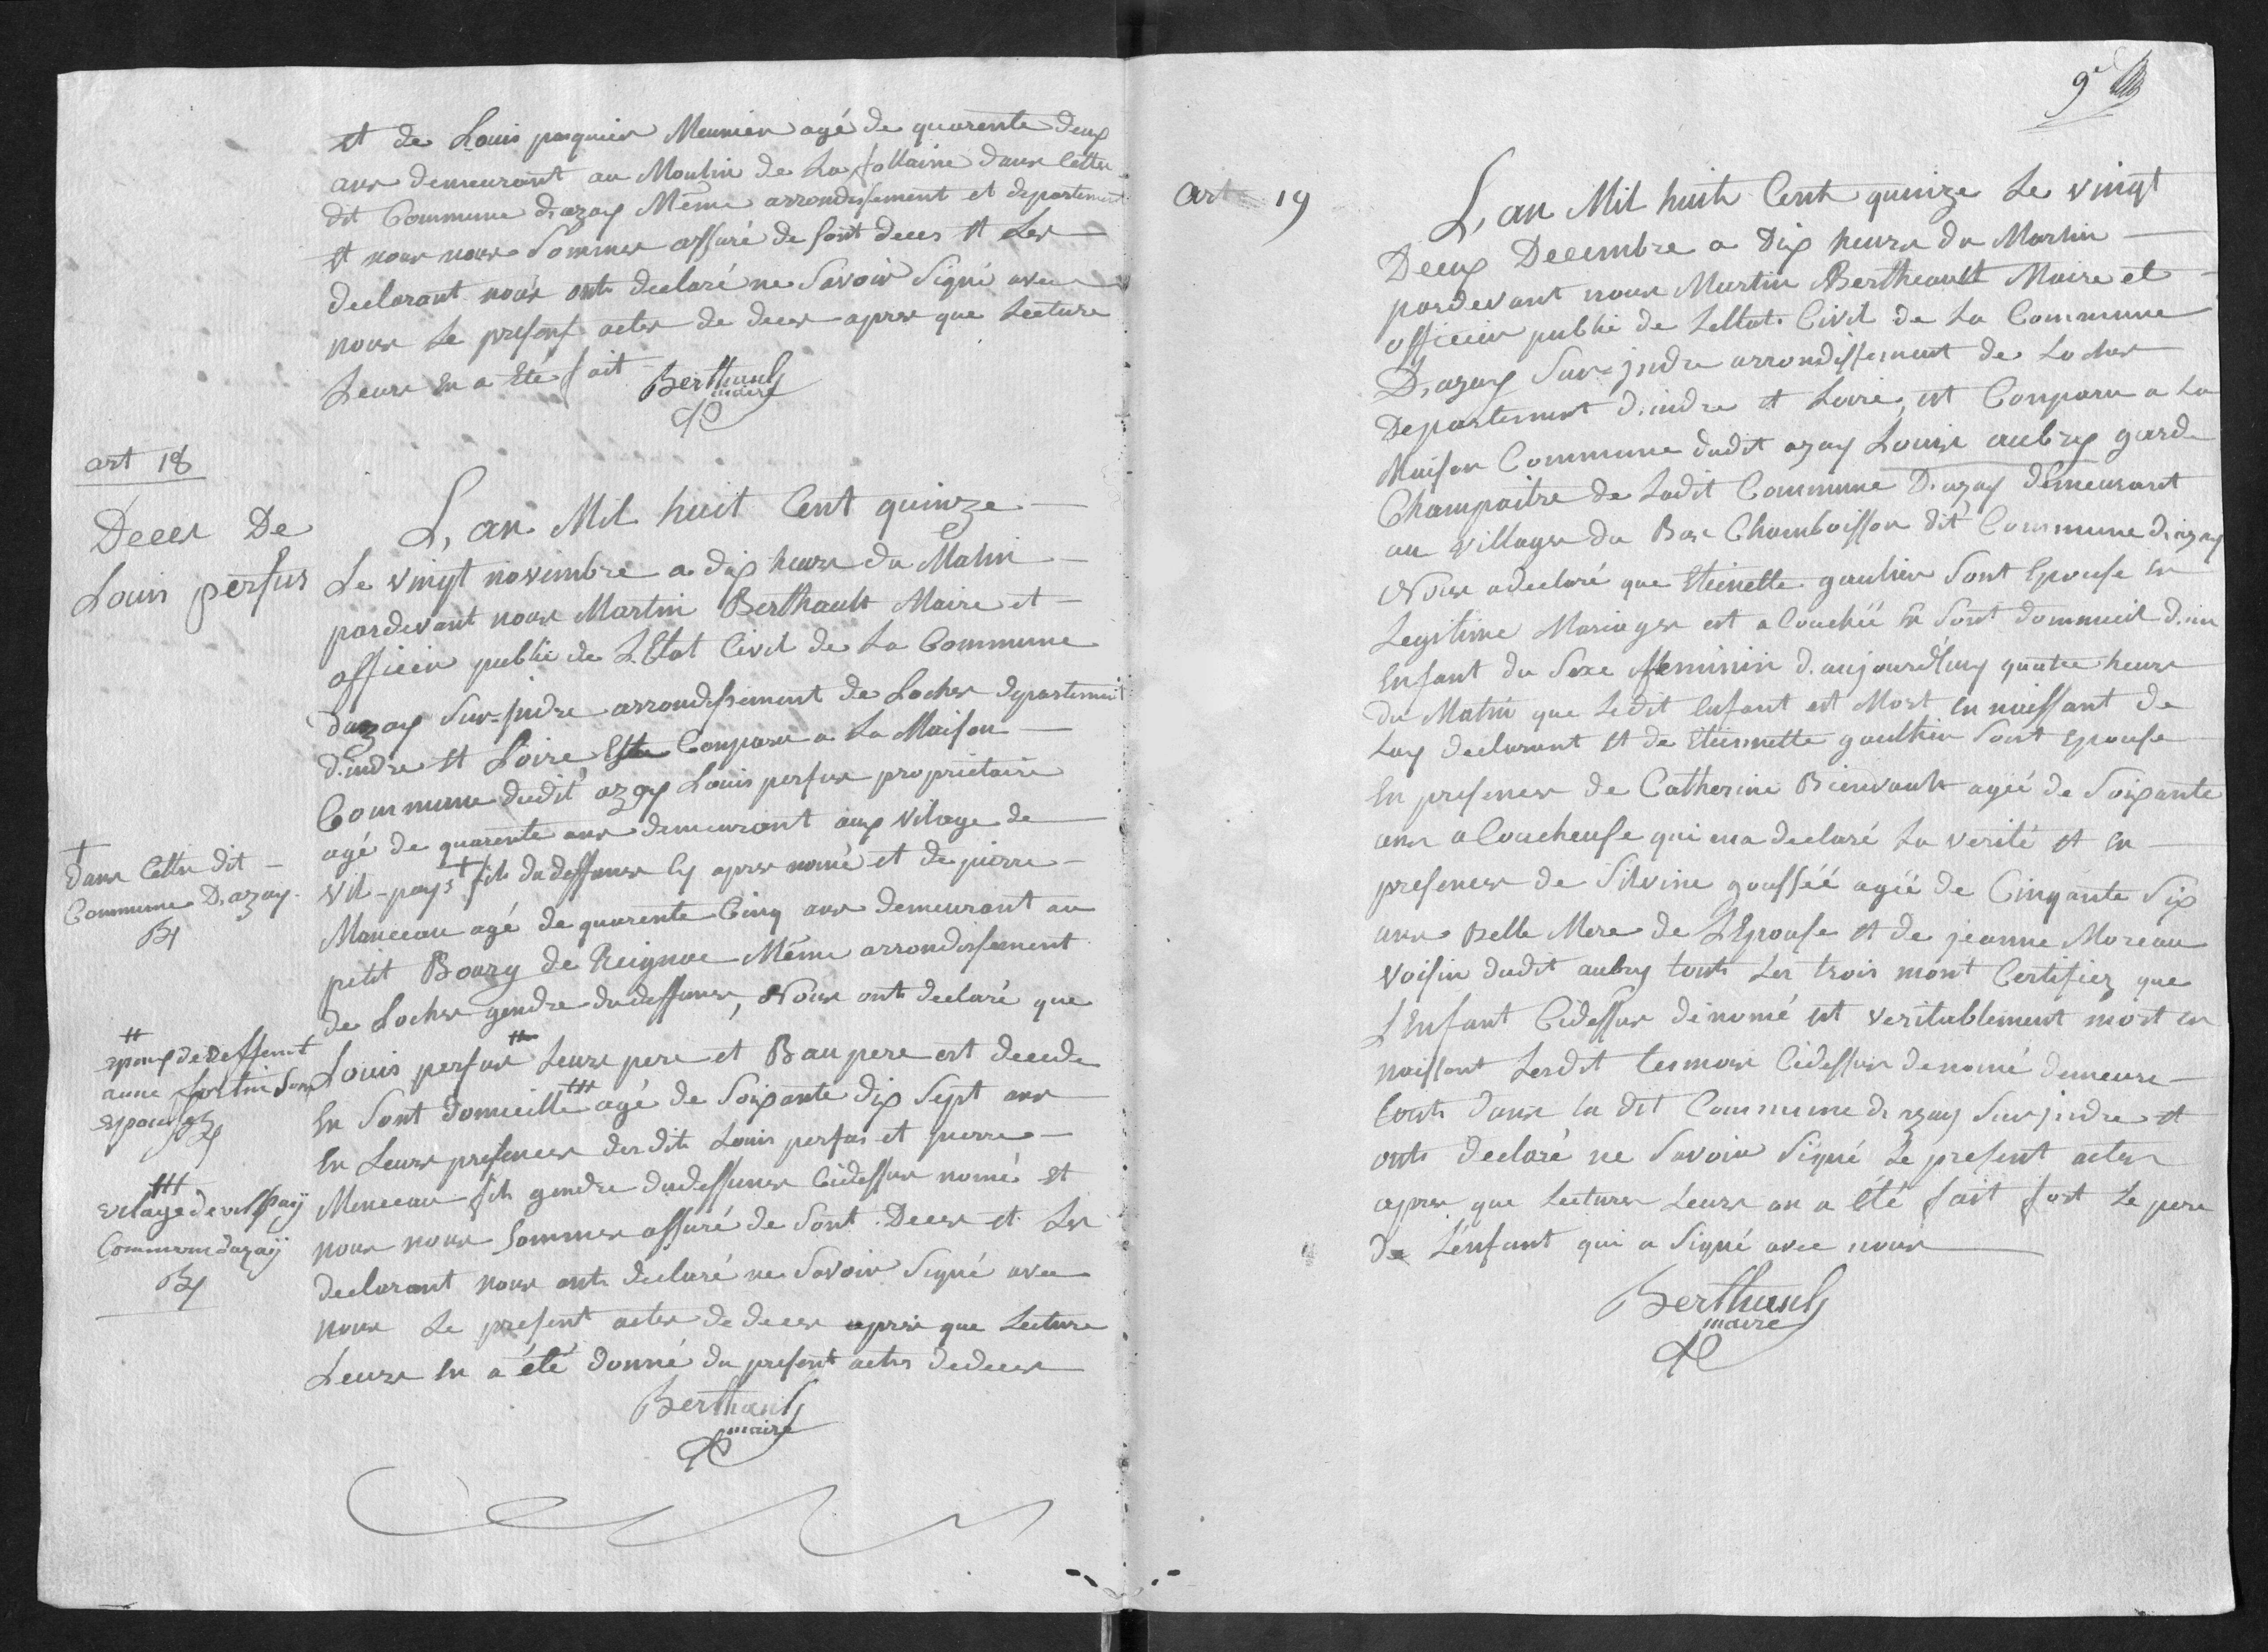 et de Louis pasquier Meunier agé de quarente deux
ans demeurant au Moulin de La follaine dans Cette
dit Commune d,azay Même arrondissement et departement
et nous nous Sommes assuré de Sont deces et Les
declarant nous onts declaré ne Savoir Signé avec
nous Le present actes de deces apres que Lecture
Leurs En a Eté fait
Berthault
maire
art 18
Deces De
Louis perfus
L, an Mil huit Cent quinze
Le vingt novembre a dix heure du Matin
pardevant nous Martin Berthault Maire et
officier publie de L'Etat Civil de La Commune
dazay Sur-jndre arrondissement de Loches departement
d.indre et Loire Est Conparu a La Maison
Commune dudit azay Louis perfus proprietaire
agé de quarente ans demeurant aux vilage de
vil-pays + fils du deffunes Cy apres nomé et de pierre
Manceau agé de quarente Cinq ans demeurant au
petit Bourg de Reignac Même arrondissement
de Loches gendre du deffunes, Nous onts declaré que
Louis perfus ++ Leurs pere et Baupere est decede
En Sont domicille +++ agé de Soixante dix Sept ans
En Leurs presences desdits Louis perfus et pierre
Menceau fils gendre du deffunes Cidessus nomé et
nous nous Sommes assuré de Sont Deces et Les
declarant nous onts declaré ne Savoir Signé avec
nous Le present actes de deces apres que Lecture
Leurs En a été donné du present actes de deces
Berthault
maire
+
dans Cette dit
Commune D,azay
++
epoux de deffunt
anne fortin Son
epouse
+++
vilage de vilpaÿ
Commune dazaÿ
9e
art 19
L, an Mil huit Cent quinze Le vingt
Deux Decembre a Dix heurs du Martin
pardevant nous Martin Bertheault Maire et
officier publie de Lettat Civil de La Commune
D,azay Sur jndre arrondissement de Loches
Departement d.indre et Loire, est Conparu a La
Maison Commune dudit azay Louise aubry garde
Champaitre de Ladit Commune D.azay demeurant
au villages du Bas Chamboisson dit Commune d,azay
Nous adeclaré que Etienette gaultier Sont Epouse En
Legitime Mariages est a Couchéé En Sont dommicil d.un
Enfant du Sexe ffeminin d.aujourdhuy quatre heurs
du Matin que Ledit Enfant est Mort En naissant de
Luy declarant et de Etiennette gaulthier Sont Epouse
En presences de Catherine Bienvault agéé de Soixante
ans a Coucheuse qui ma declaré La verité et En
presences de Silvine goufféé agéé de Cinquante Six
ans Belle Mere de L'Epouse et de jeanne Moreau
voisin dudit aubry touts Les trois mont Certifiez que
L'Enfant Cidessus dénomé est veritablement mort En
naissant Lesdit temoins Cidessus denomé demeure
touts dans La dit Commune d,azay Sur jndre et
onts declaré ne Savoir Signé Le present actes
apres que Lectures Leurs an a été fait fort Le pere
de L'enfant qui a Signé avec nous
Berthault
maire